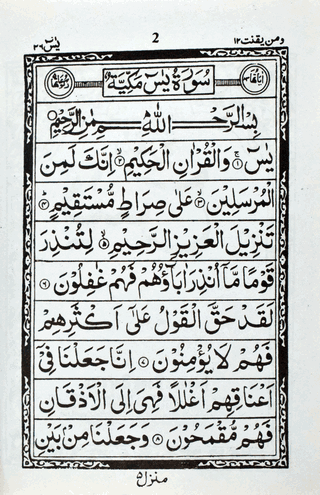 ومن يقنت ٢٢ 2 يٰسٓ ٣٦
سُوْرَةُ يٰسٓ مَكِّيَّةٌ
بِسْمِ اللّٰهِ الرَّحْمٰنِ الرَّحِيْمِ
يٰسٓ ۝١ وَالْقُرْاٰنِ الْحَكِيْمِ ۝٢ اِنَّكَ لَمِنَ
الْمُرْسَلِيْنَ ۝٣ عَلٰى صِرَاطٍ مُّسْتَقِيْمٍ ۝٤
تَنْزِيْلَ الْعَزِيْزِ الرَّحِيْمِ ۝٥ لِتُنْذِرَ
قَوْمًا مَّاۤ اُنْذِرَ اٰبَآؤُهُمْ فَهُمْ غٰفِلُوْنَ ۝٦
لَقَدْ حَقَّ الْقَوْلُ عَلٰۤى اَكْثَرِهِمْ
فَهُمْ لَا يُؤْمِنُوْنَ ۝٧ اِنَّا جَعَلْنَا فِيْۤ
اَعْنَاقِهِمْ اَغْلٰلًا فَهِىَ اِلَى الْاَذْقَانِ
فَهُمْ مُّقْمَحُوْنَ ۝٨ وَجَعَلْنَا مِنْۢ بَيْنِ
منزل ٥